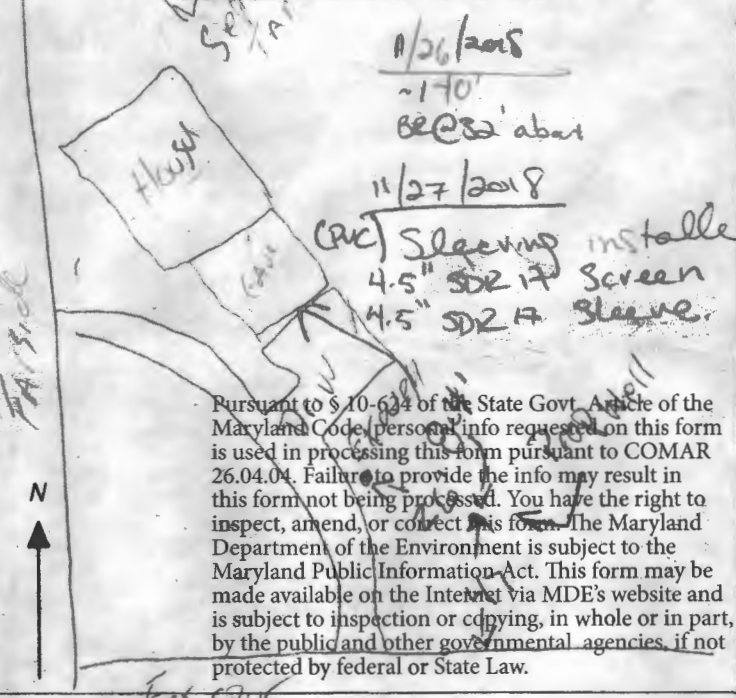 11/26/2018
BR@32'
11/27/2018
(PVC) Sleeving installe
4.5" SDR 17 Screen
4.5" SDR 17 Sleeve.
House
Pursuant to § 10-624 of the State Govt. Article of the
Maryland Code, personal info requested on this form
is used in processing this form pursuant to COMAR
26.04.04. Failure to provide the info may result in
this form not being processed. You have the right to
inspect, amend, or correct this form. The Maryland
Department of the Environment is subject to the
Maryland Public Information Act. This form may be
made available on the Internet via MDE's website and
is subject to inspection or copying, in whole or in part,
by the public and other governmental agencies, if not
protected by federal or State Law.
N